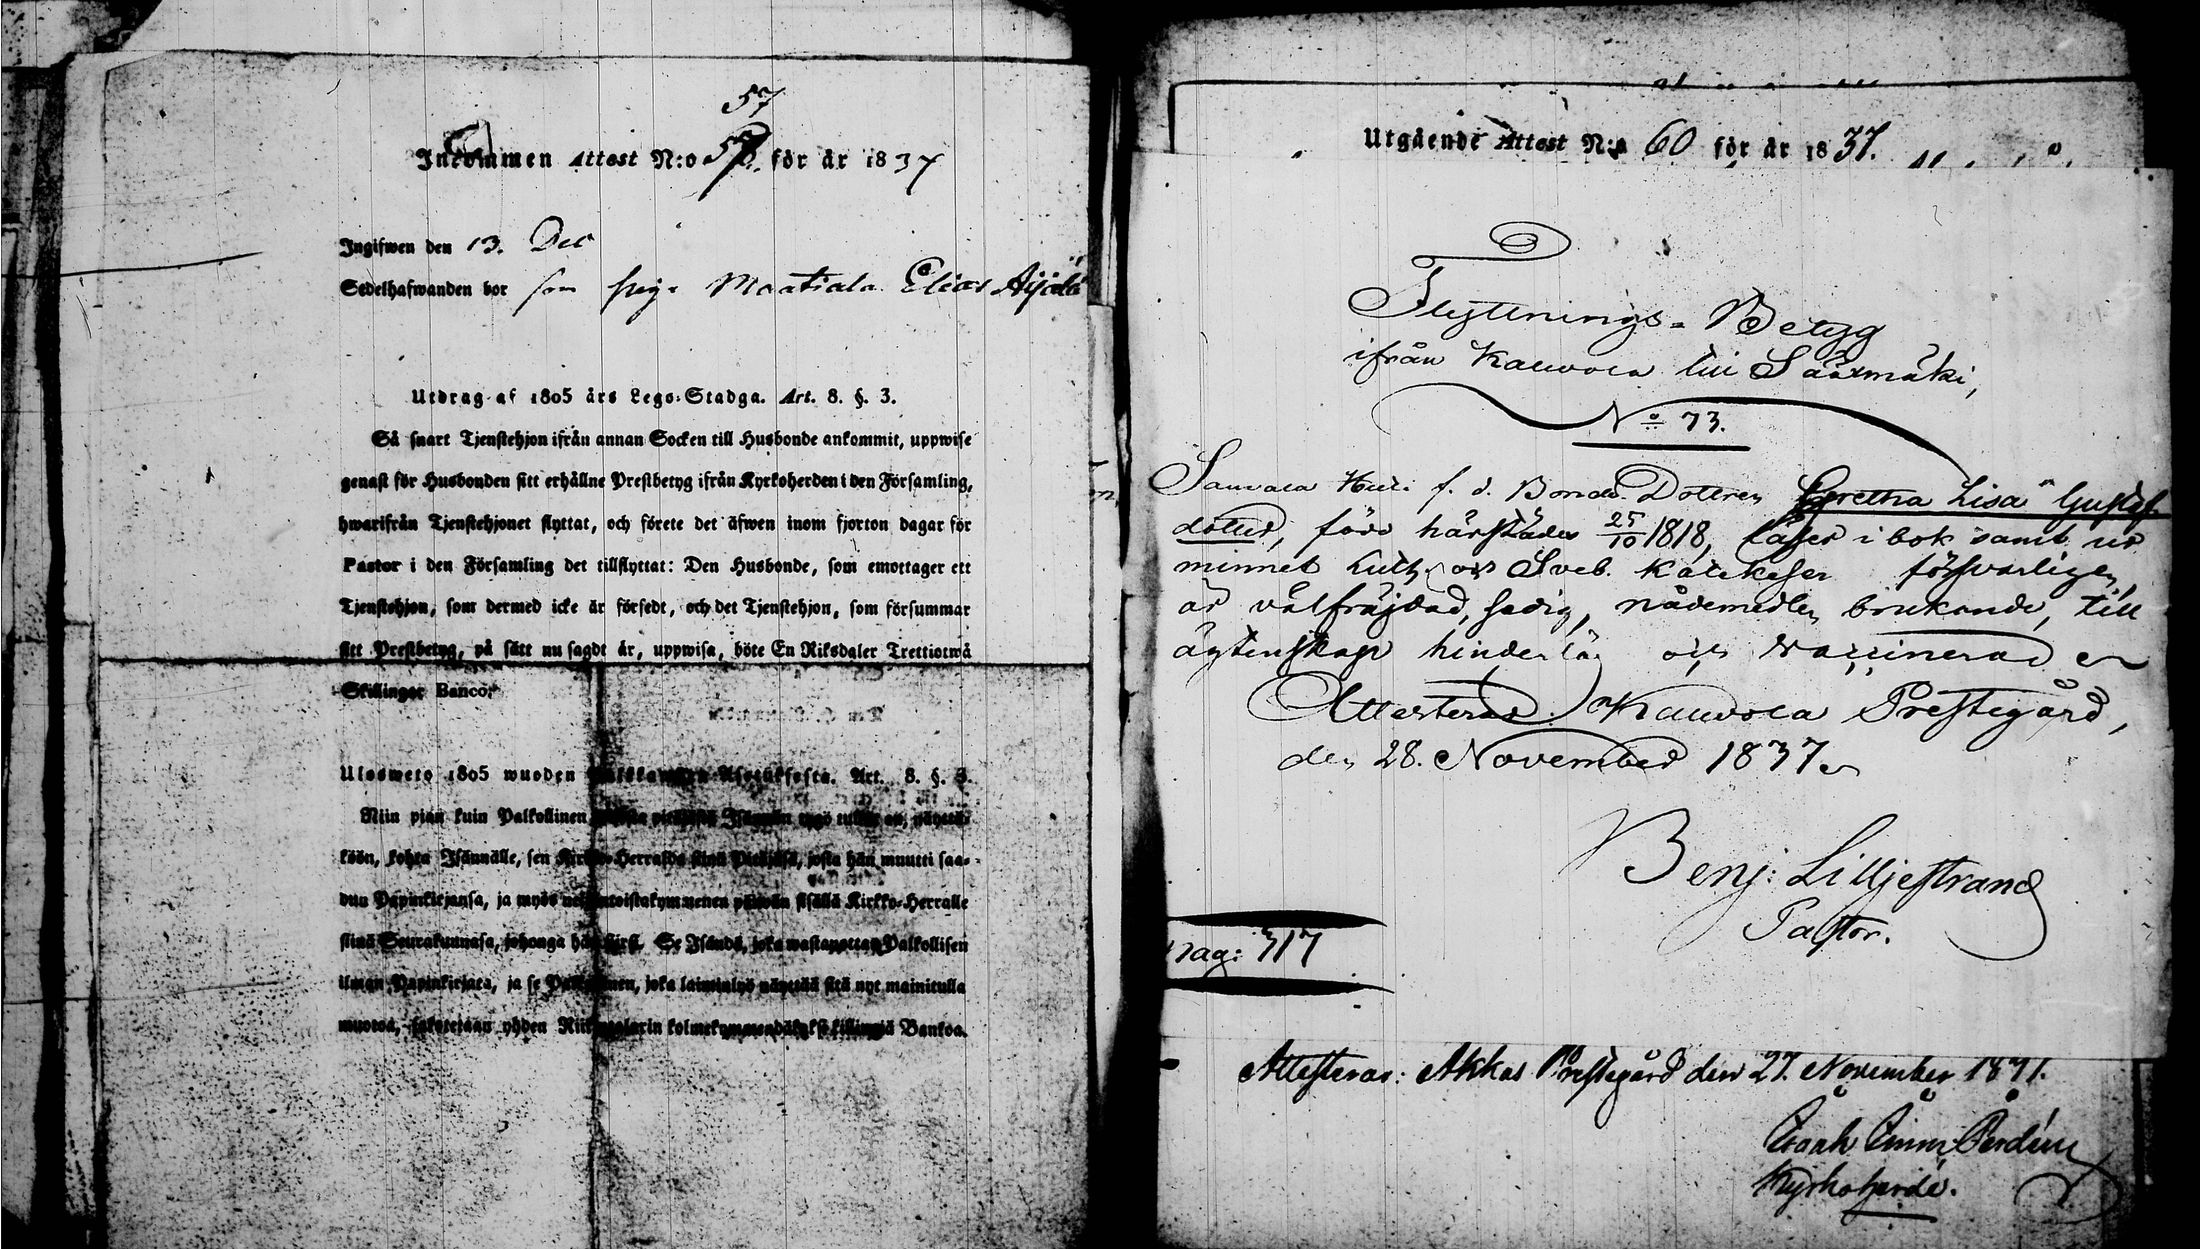 57
Inkommen Attest N:o 57. för år 1837
Ingifwen den 13. Dec
Sedelhafwanden bor som piga Maatiala Elias Äijälä
Utdrag af 1805 års Lego-Stadga. Art. 8. §. 3.
Så snart Tjenstehjon ifrån annan Socken till Husbonde ankommit, uppwise
genast för Husbonden sitt erhållne Prestbetyg ifrån Kyrkoherden i den Församling,
hwarifrån Tjenstehjonet flyttat, och förete det äfwen inom fjorton dagar för
Pastor i den Församling det tillflyttat: Den Husbonde, som emottager ett
Tjenstehjon, som dermed icke är försedt, och det Tjenstehjon, som försummar
sitt Prestbetyg, på sätt nu sagdt är, uppwisa, böte En Riksdaler Trettiotwå
Skillingar Banco.
Ulosweto 1805 wuoden Palkkawäen-Asetuksesta. Art. 8. §. 3.
Niin pian kuin Palkollinen pitäjästä Isännän tygö tullut on, näyttä-
köön, kohta Isännälle, sen Kirkko-Herralda siinä Pitäjäsä, josta hän muutti saa-
dun Papinkirjansa, ja myös neljäntoistakymmenen päiwän sisällä Kirkko-Herralle
siinä Seurakunnasa, johonga hän siirsi. Se Isändä, joka wastanottaa Palkollisen
ilman Papinkirjata, ja se Palkollinen, joka laiminlyö näyttää sitä nyt mainitulla
muotoa, sakotetaan yhden Riikintalarin kolmekymmendäkaksi killingiä Bankoa.
Utgående Attest N:o 60 för år 1837.
Flyttnings-Betyg
ifrån Kauvola till Säärmäki,
No 73.
Sauvala f. d. Bonde-Dottren Gretha Lisa Gustafs
dotter, född härstädes 25/10 1818, läser i bok samt ur
minnet Luth. och Sveb. Katekeser försvarligen,
är välfräjdad, sedig, nådemedlen brukande, till
ägtenskap hinderlös och vaccinerad
Attesteras. Kauvola Prestegård,
den 28. November 1837
Benj: Lilljestrand
Pastor.
pag: 317
Attesteras: Akkas Prestegård den 27. November 1837.
Kyrkoherde.